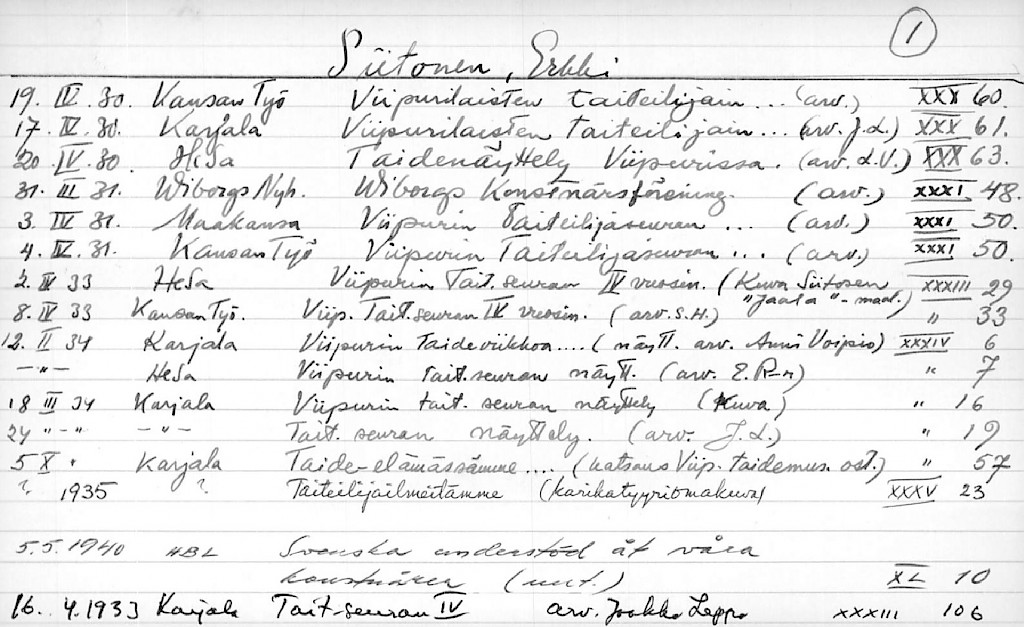 1
Siitonen, Erkki
19. IV. 30. Kansan Työ Viipurilaisten taiteilijain... (arv.) XXX 60.
17. IV. 30. Karjala Viipurilaisten taiteilijain... (arv. J.L.) XXX 61.
20. IV. 30 HeSa Taidenäyttely Viipurissa. (arv. L.V.) XXX 63.
31. III 31. Wiborgs Nyh. Wiborgs Konstnärsförening. (arv.) XXXI 48.
3. IV 31. Maakansa Viipurin Taiteilijaseuran ... (arv.) XXXI 50.
4. IV. 31. Kansan Työ Viipurin Taiteilijaseuran ... (arv.) XXXI 50.
2. IV 33 HeSa Viipurin Tait. seuran IV vuosin. (Kuva Siitosen XXXIII 29
"Jaala"-maal.)
8. IV 33 Kansan Työ. Viip. Tait. seuran IV vuosin. (arv. S.H.) " 33
12. II 34 Karjala Viipurin Taideviikkoa.... (näytt. arv. Anni Voipio) XXXIV 6
- " - HeSa Viipurin tait. seuran näytt. (arv. E. R-n) " 7
18 III 34 Karjala Viipurin tait. seuran näyttely (Kuva) " 16
24 " - " - " - Tait. seuran näyttely. (arv. J.L.) " 19
5 X " Karjala Taide-elämässämme.... (katsaus Viip. taidemus. ost.) " 57
? 1935 ? Taiteilijoilmeitämme (karikatyyriomakuva) XXXV 23
5.5.1940 HBL Svenska understöd åt våra
konstnärer (uut.) XL 10
16. 4.1933 Karjala Tait-seuran IV arv. Jaakko Leppo XXXIII 106